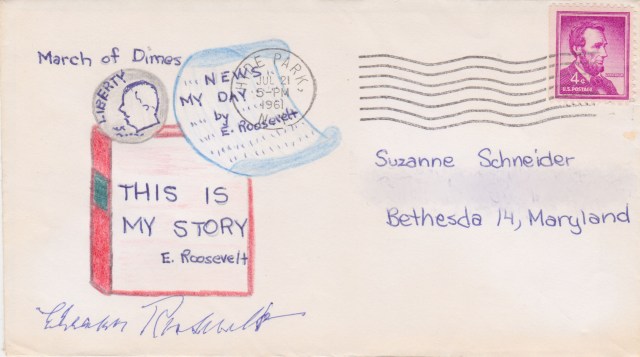 March of Dimes
LIBERTY
NEWS
MY DAY
by
E. Roosevelt
HYDE PARK,
JUL 21
5-PM
1961
N.Y.
4¢
U.S. POSTAGE
THIS IS
MY STORY
E. Roosevelt
Suzanne Schneider
Bethesda 14, Maryland
Eleanor Roosevelt